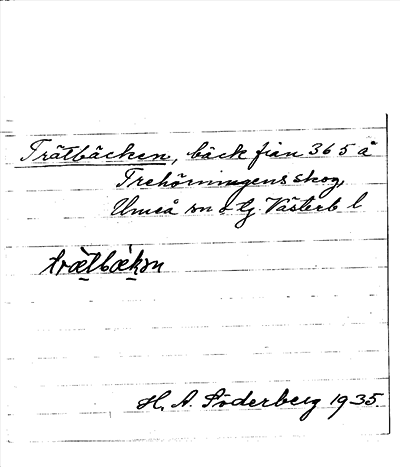 Trätbäcken, bäck från 365 å
Trehörningens skog,
Umeå sn o lg. Västerb l
træ̀tbæ̀kən
H. A. Söderberg 1935.